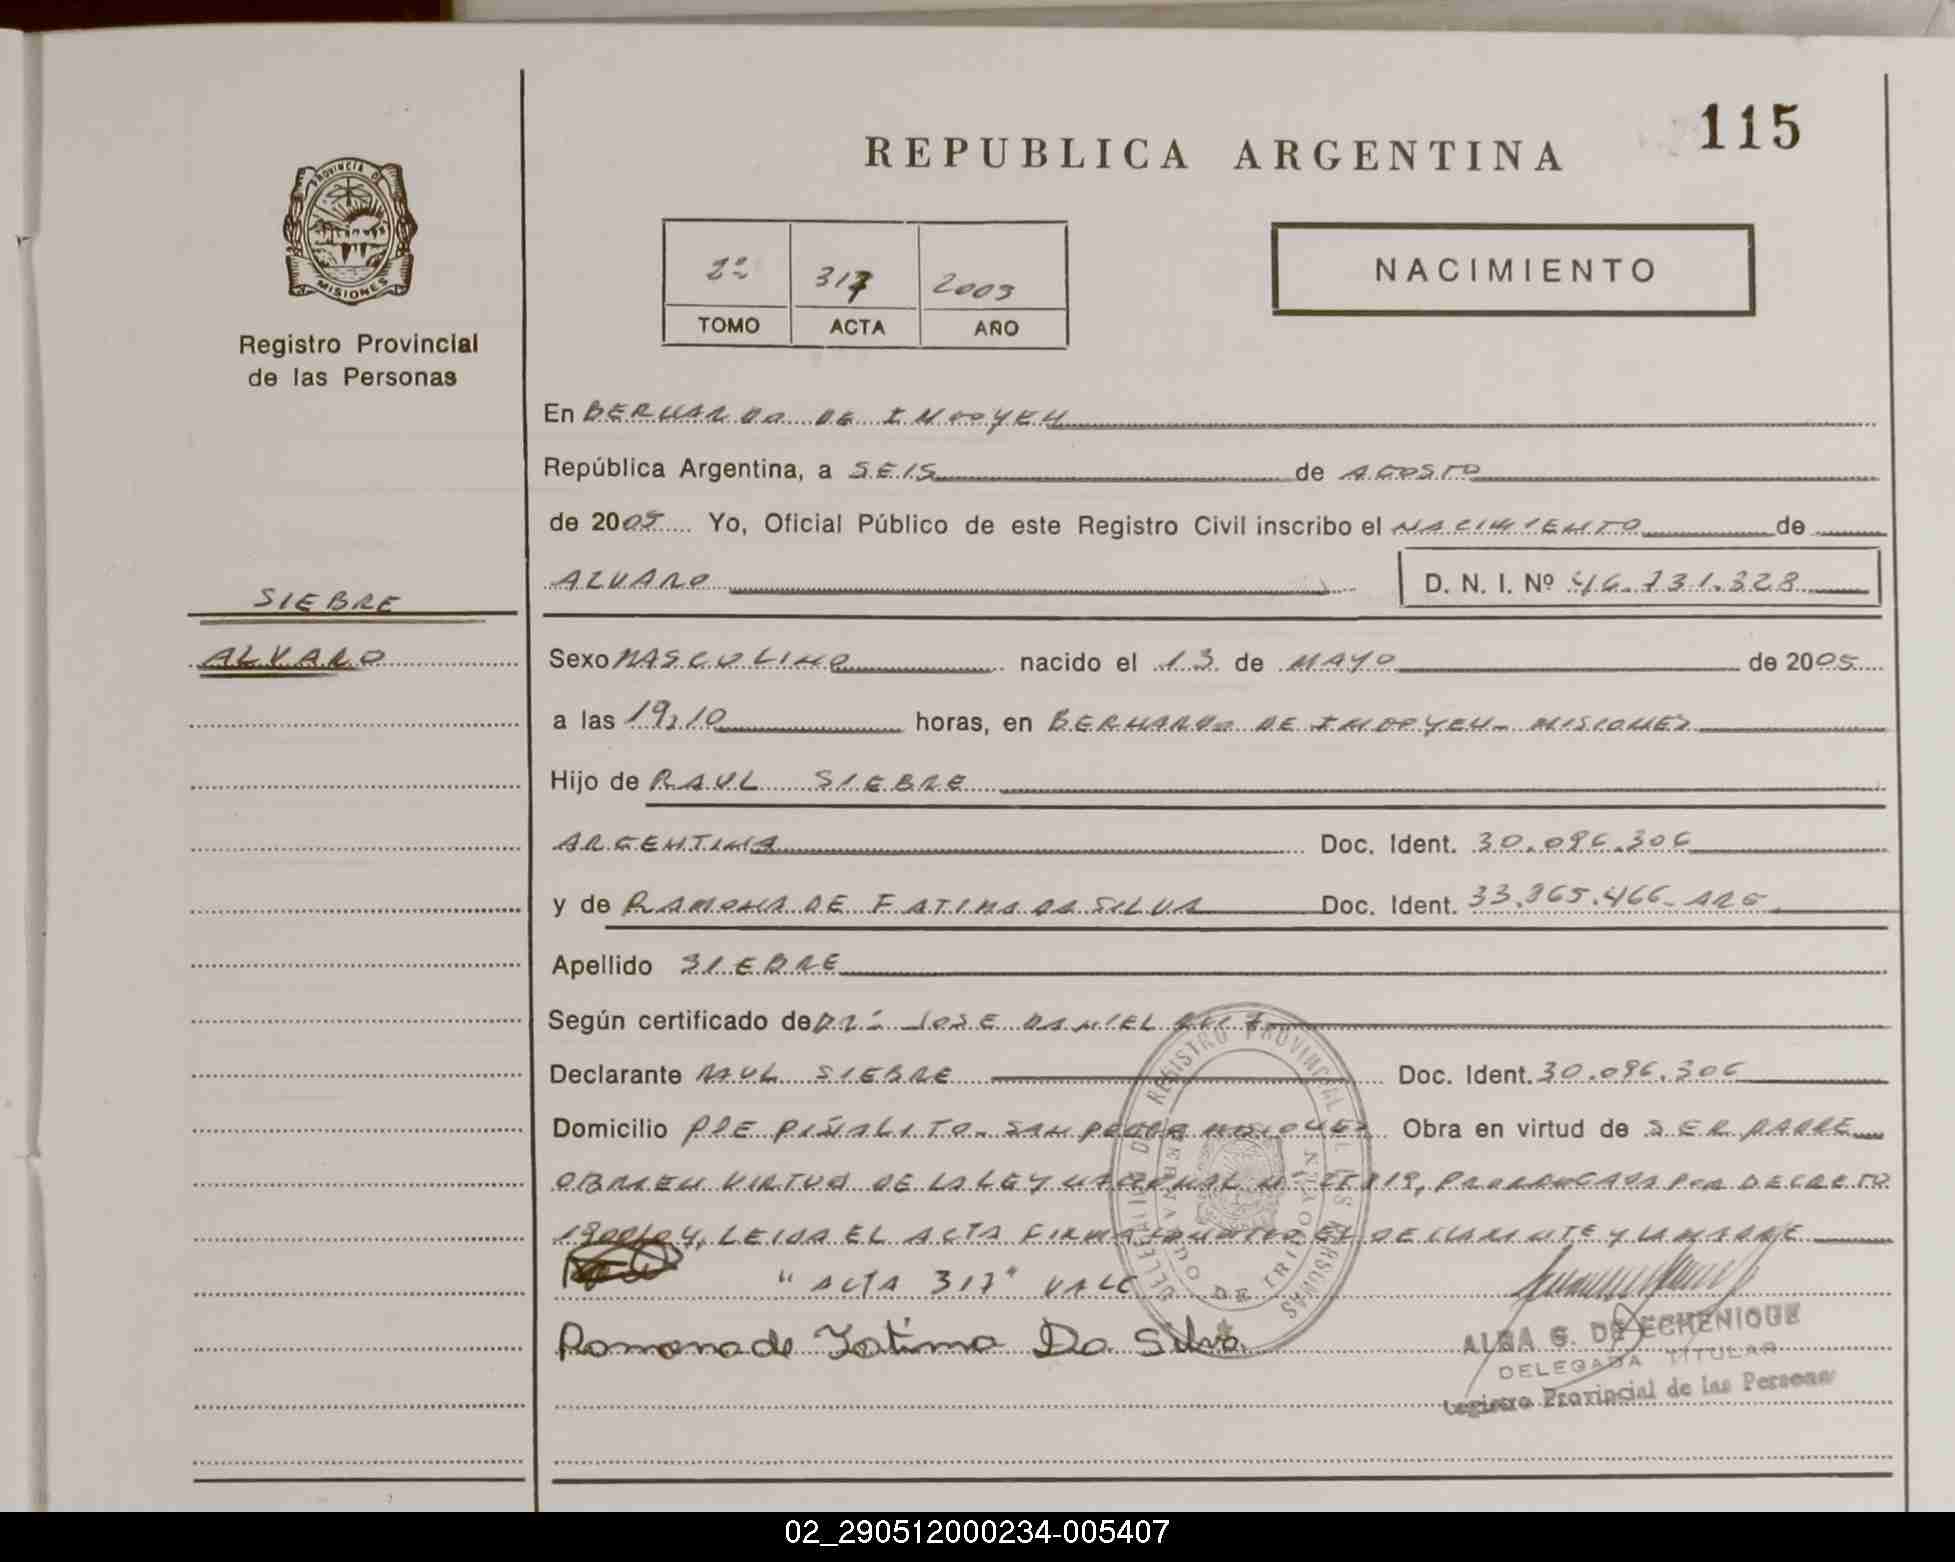 115
REPUBLICA ARGENTINA
PROVINCIA DE
MISIONES
Registro Provincial
de las Personas
2º 317 2005
TOMO ACTA AÑO
NACIMIENTO
En BERNARDO DE IRIGOYEN
República Argentina, a SEIS de AGOSTO
de 2005 Yo, Oficial Público de este Registro Civil inscribo el NACIMIENTO de
ALVARO D. N. I. Nº 46.731.328
SIEBRE
ALVARO
Sexo MASCULINO nacido el 13 de MAYO de 2005
a las 19,10 horas, en BERNARDO DE IRIGOYEN - MISIONES
Hijo de RAUL SIEBRE
ARGENTINA Doc. Ident. 30.096.306
y de RAMONA DE FATIMA DA SILVA Doc. Ident. 33.365.466- ARG
Apellido SIEBRE
Según certificado de DR. JOSE DANIEL
Declarante RAUL SIEBRE Doc. Ident. 30.096.306
Domicilio PJE PIÑALITO - SAN PEDRO MISIONES Obra en virtud de SER PADRE
OBRA EN VIRTUD DE LA LEY NACIONAL Nº 25819, PRORROGADA POR DECRETO
1900/04, LEIDA EL ACTA FIRMA EL DECLARANTE Y LA MADRE
"ACTA 317" VALE
Ramona de Fatima Da Silva
REGISTRO PROVINCIAL DE LAS PERSONAS
BERNARDO DE IRIGOYEN
ALBA G. DE ECHENIQUE
DELEGADA TITULAR
Registro Provincial de las Personas
02_290512000234-005407